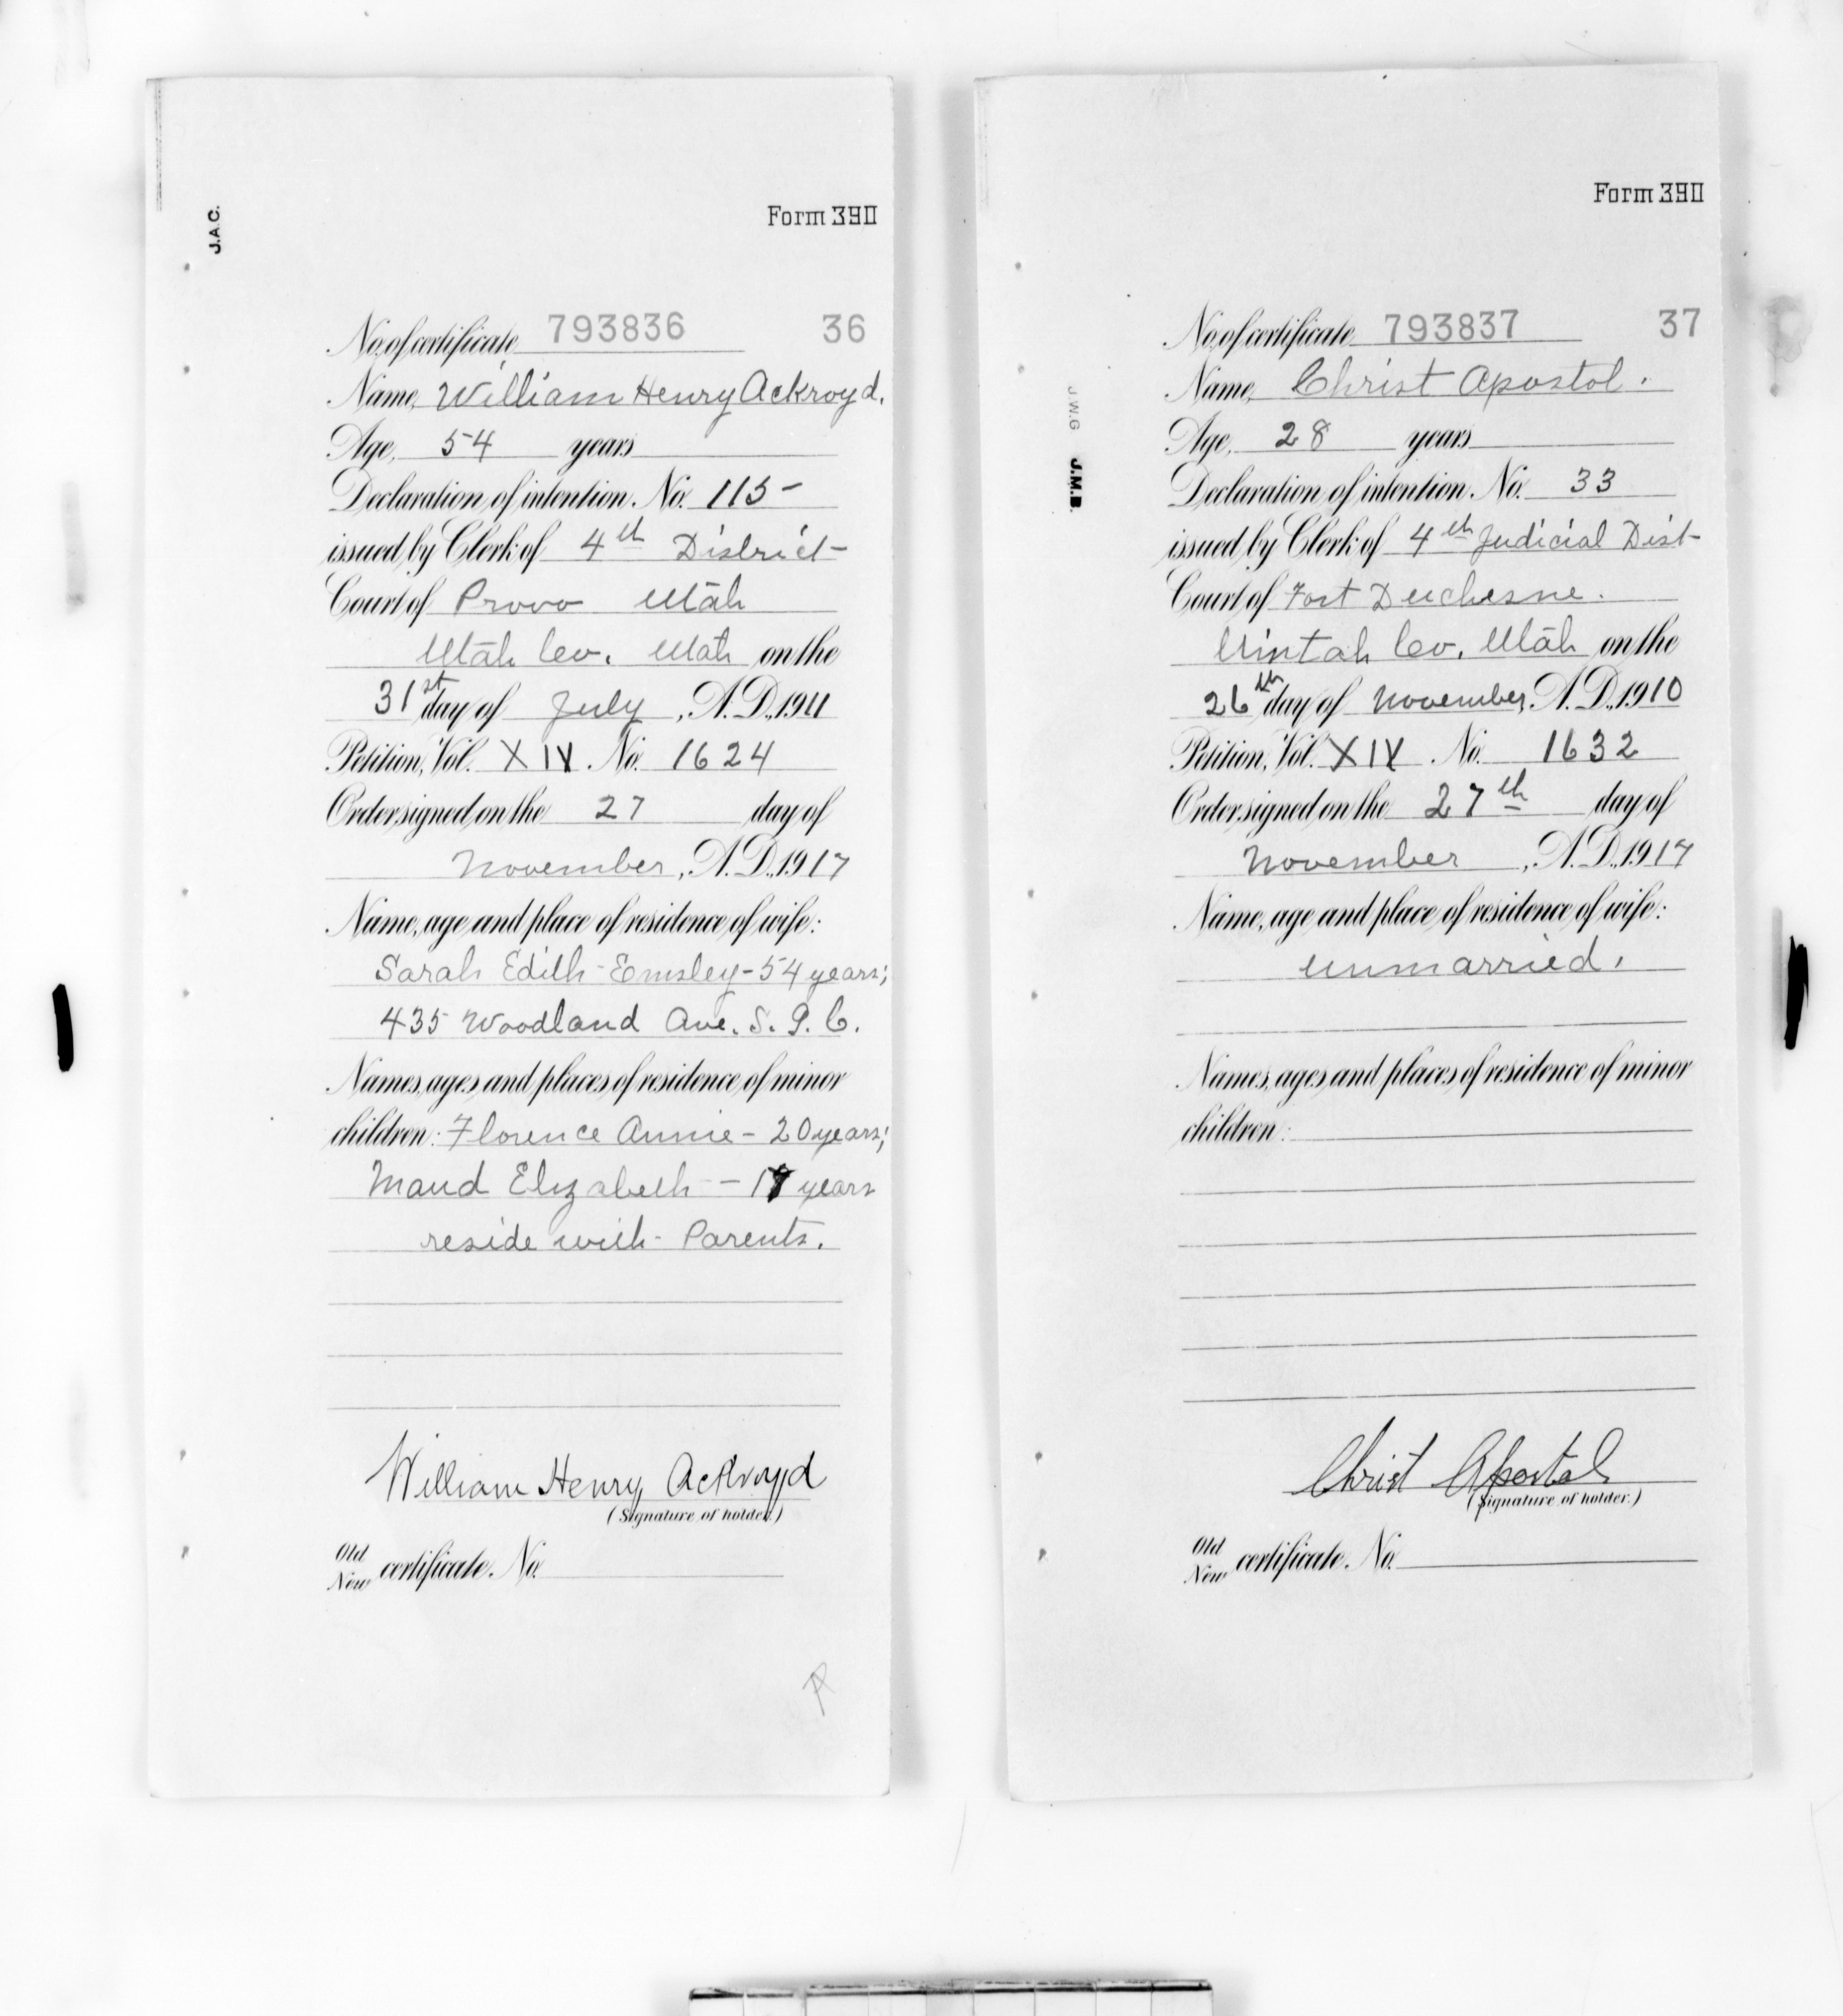 J.A.C.
Form 390
No. of certificate 793836 36
Name, William Henry Ackroyd.
Age, 54 years
Declaration of intention. No. 115-
issued by Clerk of 4th District
Court of Provo Utah
Utah Co. Utah on the
31st day of July, A. D., 1911
Petition, Vol. XIV. No. 1624
Order signed on the 27 day of
November, A. D., 1917
Name, age and place of residence of wife:
Sarah Edith Emsley - 54 years;
435 Woodland Ave. S. L. C.
Names, ages and places of residence of minor
children: Florence Annie - 20 years;
Maud Elizabeth - 17 years
reside with Parents.
William Henry Ackroyd
(Signature of holder.)
Old
New certificate. No.
Form 390
J.W.G J.M.B.
No. of certificate 793837 37
Name, Christ Apostol.
Age, 28 years
Declaration of intention. No. 33
issued by Clerk of 4th Judicial Dist
Court of Fort Duchesne.
Uintah Co. Utah on the
26th day of November, A. D., 1910
Petition, Vol. XIV. No. 1632
Order signed on the 27th day of
November, A. D., 1917
Name, age and place of residence of wife:
unmarried.
Names, ages and places of residence of minor
children:
Christ Apostol
(Signature of holder.)
Old
New certificate. No.